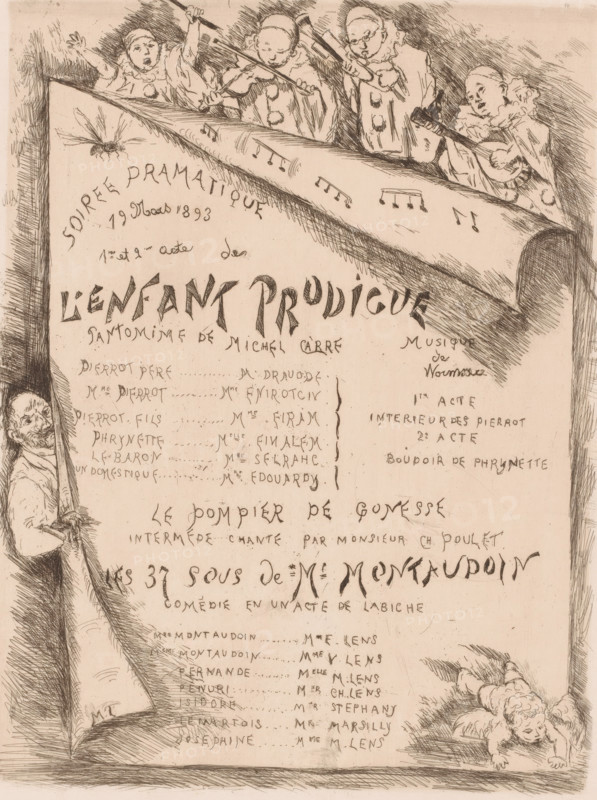 SOIRÉE DRAMATIQUE
19 Mars 1893
1er et 2me acte de
L'ENFANT PRODIGUE
PANTOMIME DE MICHEL CARRE
MUSIQUE
de
Wormser
PIERROT PERE ........ Mr DRAUODE
Mme PIERROT ........ Mme ENIROTCIV
PIERROT FILS ........ Mrs FIRAM
PHRYNETTE ........ Melle EINALEM
LE BARON ........ Mr SELRAHC
UN DOMESTIQUE ........ Mr EDOUARDY
1er ACTE
INTERIEUR DES PIERROT
2e ACTE
BOUDOIR DE PHRYNETTE
LE POMPIER DE GONESSE
INTERMÈDE CHANTÉ PAR MONSIEUR CH POULET
LES 37 SOUS de Mr MONTAUDOIN
COMÉDIE EN UN ACTE DE LABICHE
MONTAUDOIN ........ Mr E. LENS
MONTAUDOIN ........ Mme V LENS
FERNANDE ........ Melle M. LENS
PENURI ........ Mr CH. LENS
ISIDORE ........ Mr STEPHANY
LEMARTOIS ........ Mr MARSILLY
JOSEPHINE ........ M. LENS
ML